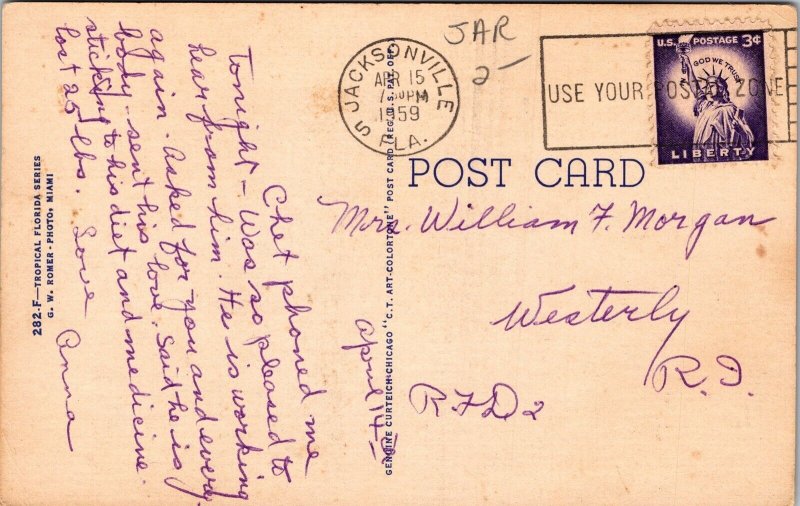 JAR
2-
JACKSONVILLE
APR 15
PM
1959
FLA.
5
USE YOUR POSTAL ZONE
U.S. POSTAGE 3¢
IN GOD WE TRUST
LIBERTY
POST CARD
Mrs. William F. Morgan
Westerly
R.I.
RFD 2
April 14
Chet phoned me
tonight - Was so pleased to
hear from him. He is working
again. Asked for you and every
body - sent his love. Said he is
sticking to his diet and medicine.
lost 25 lbs. Love
Anna
282-F-TROPICAL FLORIDA SERIES
G. W. ROMER-PHOTO, MIAMI
GENUINE CURTEICH-CHICAGO "C.T. ART-COLORTONE" POST CARD (REG. U.S. PAT. OFF.)